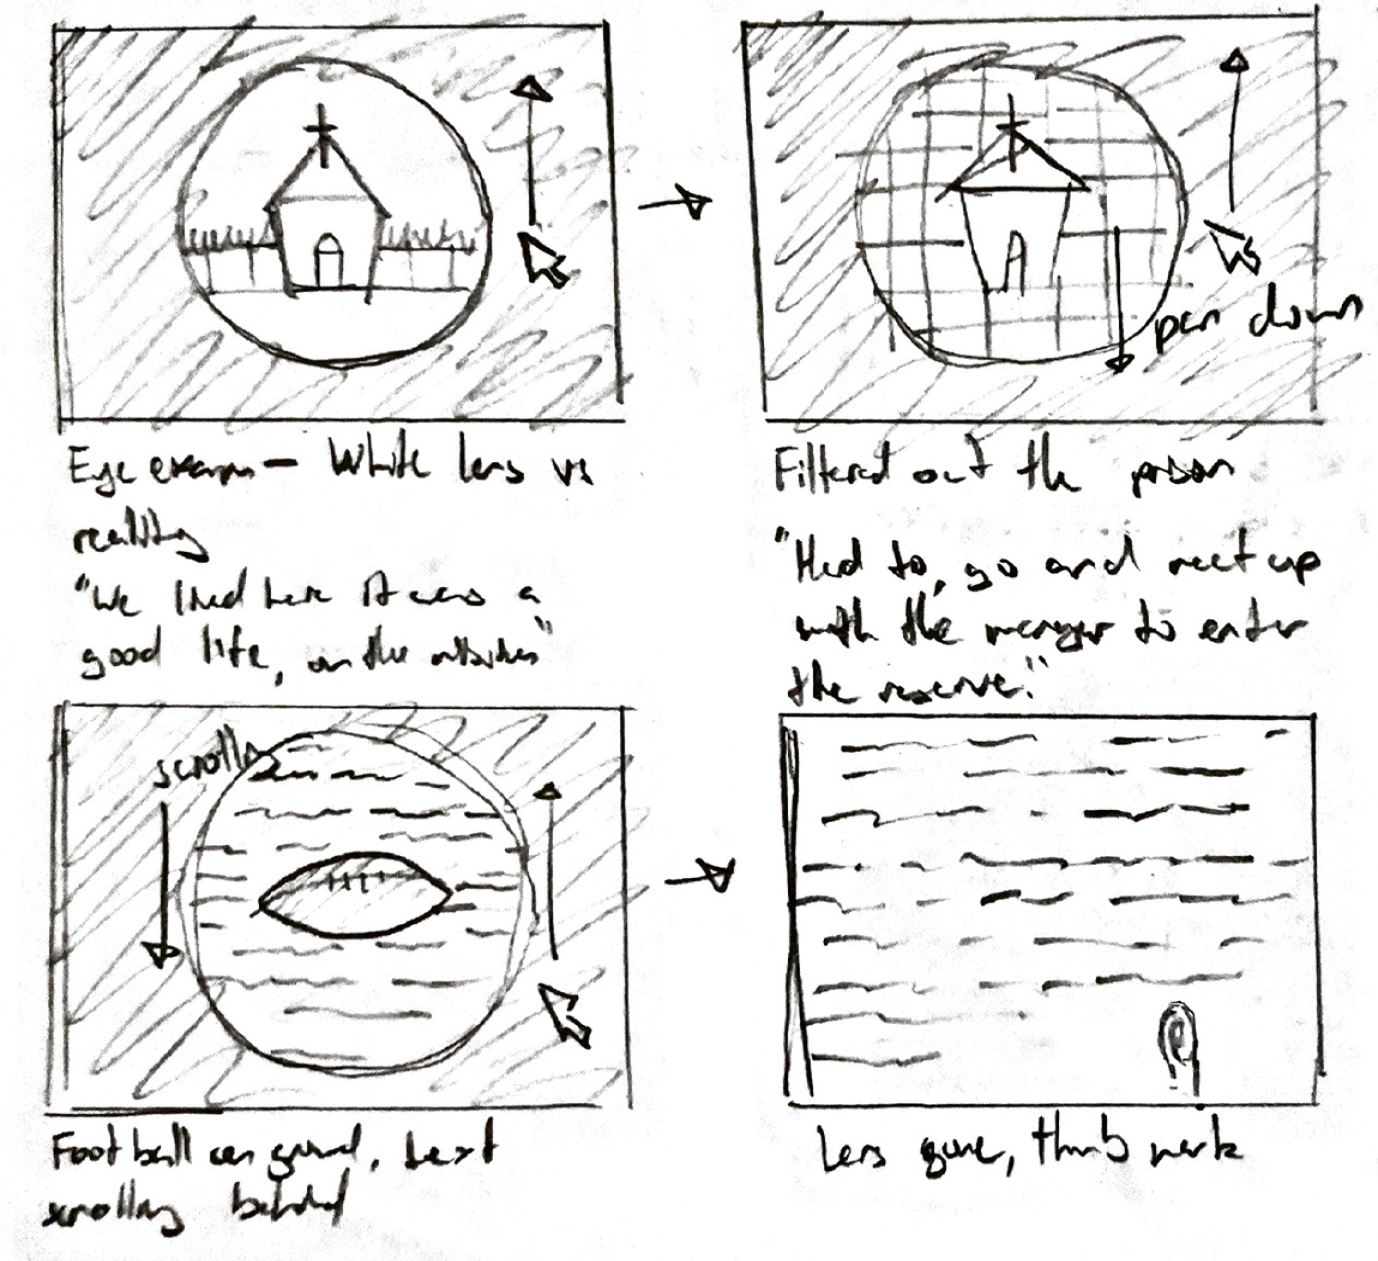 Eye exam - White lens vs
reality
"We lived here It was a
good life, on the outside"
pan down
Filtered out the prison
"Had to, go and meet up
with the manager to enter
the reserve."
scroll
Football on ground, text
scrolling behind
Lens gone, thumb mark